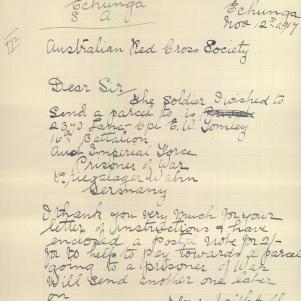 Echunga
S. A.
Echunga
Nov 12th 1917
Australian Red Cross Society
Dear Sir
The Soldier I wished to
send a parcel to is
2370 Lanc-Cpl E. W. Tomley
16th Battalion
Aust Imperial Force
Prisoner of War
Kriegalager Wahn
Germany
I thank you very much for your
letter of instructions & have
enclosed a Postal note for 2/-
to help to pay towards a parcel
going to a prisoner of War
Will send another one later
on